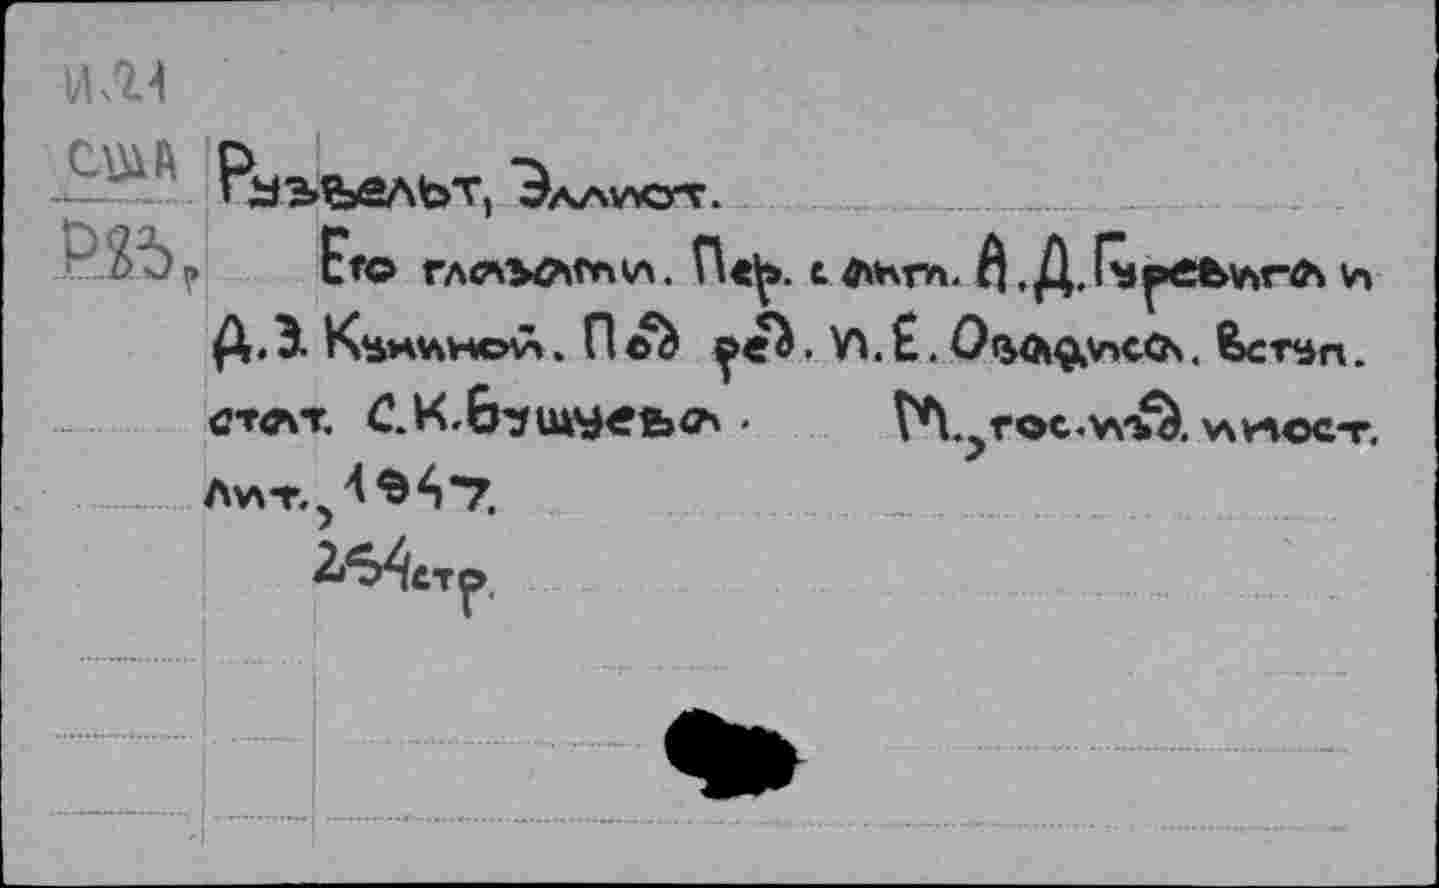 И.21
США
Р83,
Рузвельт, Эллиот.
Его глазами. Пер. с англ. А.Д.Гуревига и
Д.Э. Куниной. Под ред. И.Е. Овадиса. Вступ.
стат. С.К.Бушуева. М.,гос.изд. иност.
лит., 1947.
254стр.